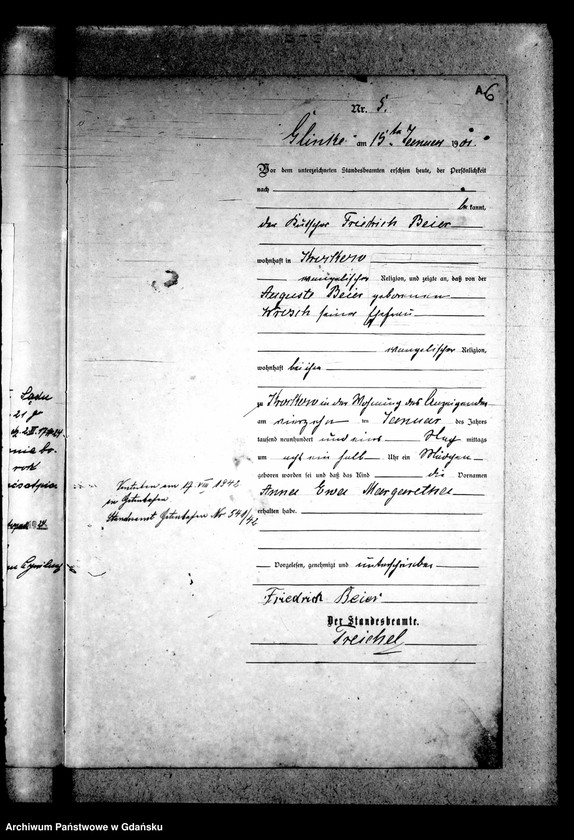 A6
Nr. 5.
Glinke am 15ten Januar 1901.
Vor dem unterzeichneten Standesbeamten erschien heute, der Persönlichkeit
nach
bekannt,
der Kutscher Friedrich Beier
wohnhaft in Krockow
evangelischer Religion, und zeigte an, daß von der
Auguste Beier geborenen
Kresch seiner Ehefrau
evangelischer Religion,
wohnhaft bei ihm
zu Krockow in der Wohnung des Anzeigenden
am vierzehn ten Januar des Jahres
tausend neunhundert und eins Nach mittags
um acht ein halb Uhr ein Mädchen
geboren worden sei und daß das Kind die Vornamen
Anna Ewa Margarethe
erhalten habe.
Vorgelesen, genehmigt und unterschrieben
Friedrich Beier
Der Standesbeamte.
Treichel
Verstorben am 17 VII 1942
in Gotenhafen
Standesamt Gotenhafen Nr 540/42
21
1924
Archiwum Państwowe w Gdańsku